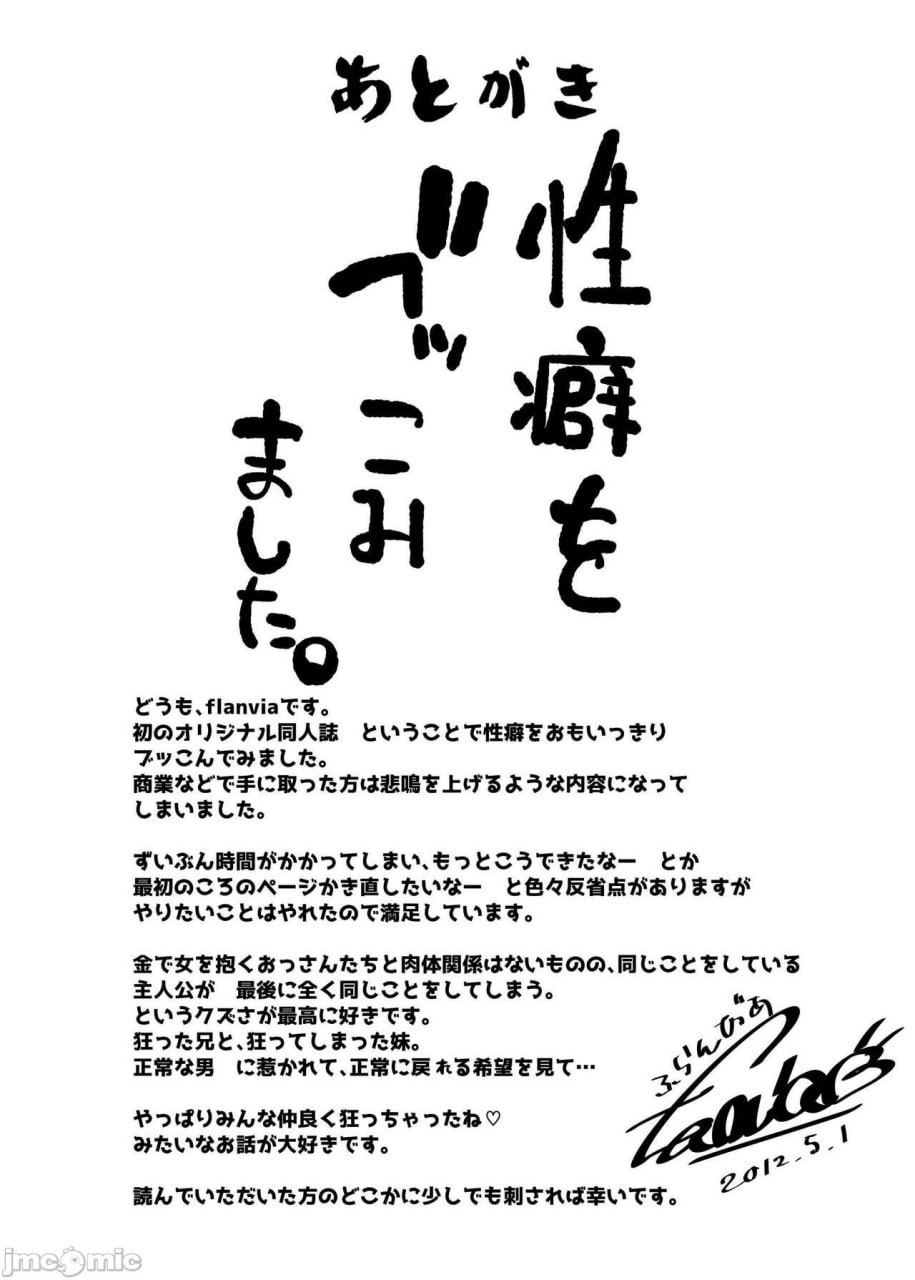 あとがき
性癖を
ブッこみ
ました。
どうも、flanviaです。
初のオリジナル同人誌　ということで性癖をおもいっきり
ブッこんでみました。
商業などで手に取った方は悲鳴を上げるような内容になって
しまいました。
ずいぶん時間がかかってしまい、もっとこうできたなー　とか
最初のころのページかき直したいなー　と色々反省点がありますが
やりたいことはやれたので満足しています。
金で女を抱くおっさんたちと肉体関係はないものの、同じことをしている
主人公が　最後に全く同じことをしてしまう。
というクズさが最高に好きです。
狂った兄と、狂ってしまった妹。
正常な男　に惹かれて、正常に戻れる希望を見て…
やっぱりみんな仲良く狂っちゃったね♡
みたいなお話が大好きです。
読んでいただいた方のどこかに少しでも刺されば幸いです。
ふらんびあ
2012.5.1
jmcomic